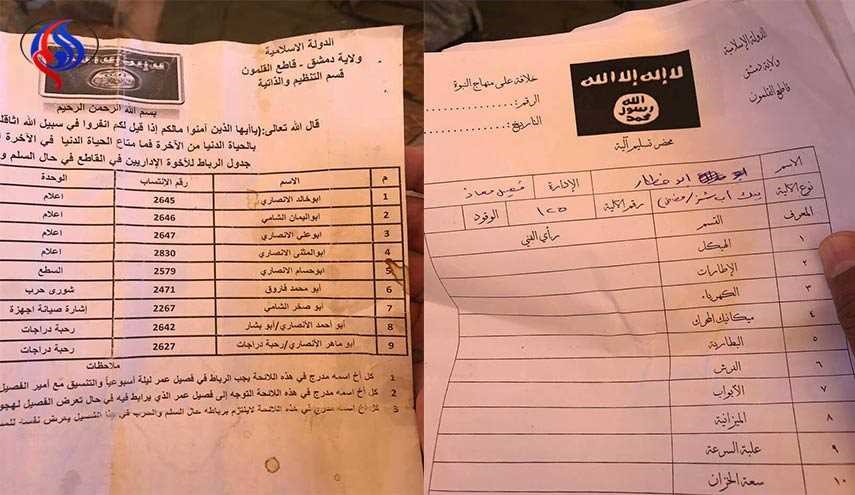 الدولة الاسلامية
ولاية دمشق - قاطع القلمون
قسم التنظيم والذاتية
بسم الله الرحمن الرحيم
قال الله تعالى:(ياأيها الذين آمنوا مالكم إذا قيل لكم انفروا في سبيل الله اثاقلـ
بالحياة الدنيا من الآخرة فما متاع الحياة الدنيا في الآخرة
جدول الرباط للأخوة الإداريين في القاطع في حال السلم و
م الاسم رقم الانتساب الوحدة
1 ابوخالد الانصاري 2645 اعلام
2 ابواليمان الشامي 2646 اعلام
3 ابوعلي الانصاري 2647 اعلام
4 ابوالمثنى الانصاري 2830 اعلام
5 أبو حسام الانصاري 2579 السطع
6 أبو محمد فاروق 2471 شورى حرب
7 أبو صخر الشامي 2267 إشارة صيانة اجهزة
8 أبو أحمد الأنصاري/أبو بشار 2642 رحبة دراجات
9 ابو ماهر الأنصاري/رحبة دراجات 2627 رحبة دراجات
ملاحظات
1 كل أخ اسمه مدرج في هذه اللائحة يجب الرباط في فصيل عمر ليلة أسبوعياً والتنسيق مع أمير الفصيل
2 كل أخ اسمه مدرج في هذه اللائحة التوجه إلى فصيل عمر الذي يرابط فيه في حال تعرض الفصيل لهجو
3 كل أخ اسمه مدرج في هذه اللائحة لايلتزم برباطه حال السلم والحرب في هذا الفصيل يعرض نفسه للمس
الدولة الإسلامية
ولاية دمشق
قاطع القلمون
لا إله إلا الله
الله
رسول
محمد
خلافة على منهاج النبوة
الرقم:
التاريخ:
محضر تسليم آلية
الاسم ابو خطار الإدارة فصيل معاذ
نوع الآلية رقم الآلية ١٢٥ الوقود
المعرف القسم رأي الفني
١ الهيكل
٢ الإطارات
٣ الكهرباء
٤ ميكانيك المحرك
٥ البطارية
٦ الفرش
٧ الأبواب
٨ الميزانية
٩ علبة السرعة
١٠ سعة الخزان